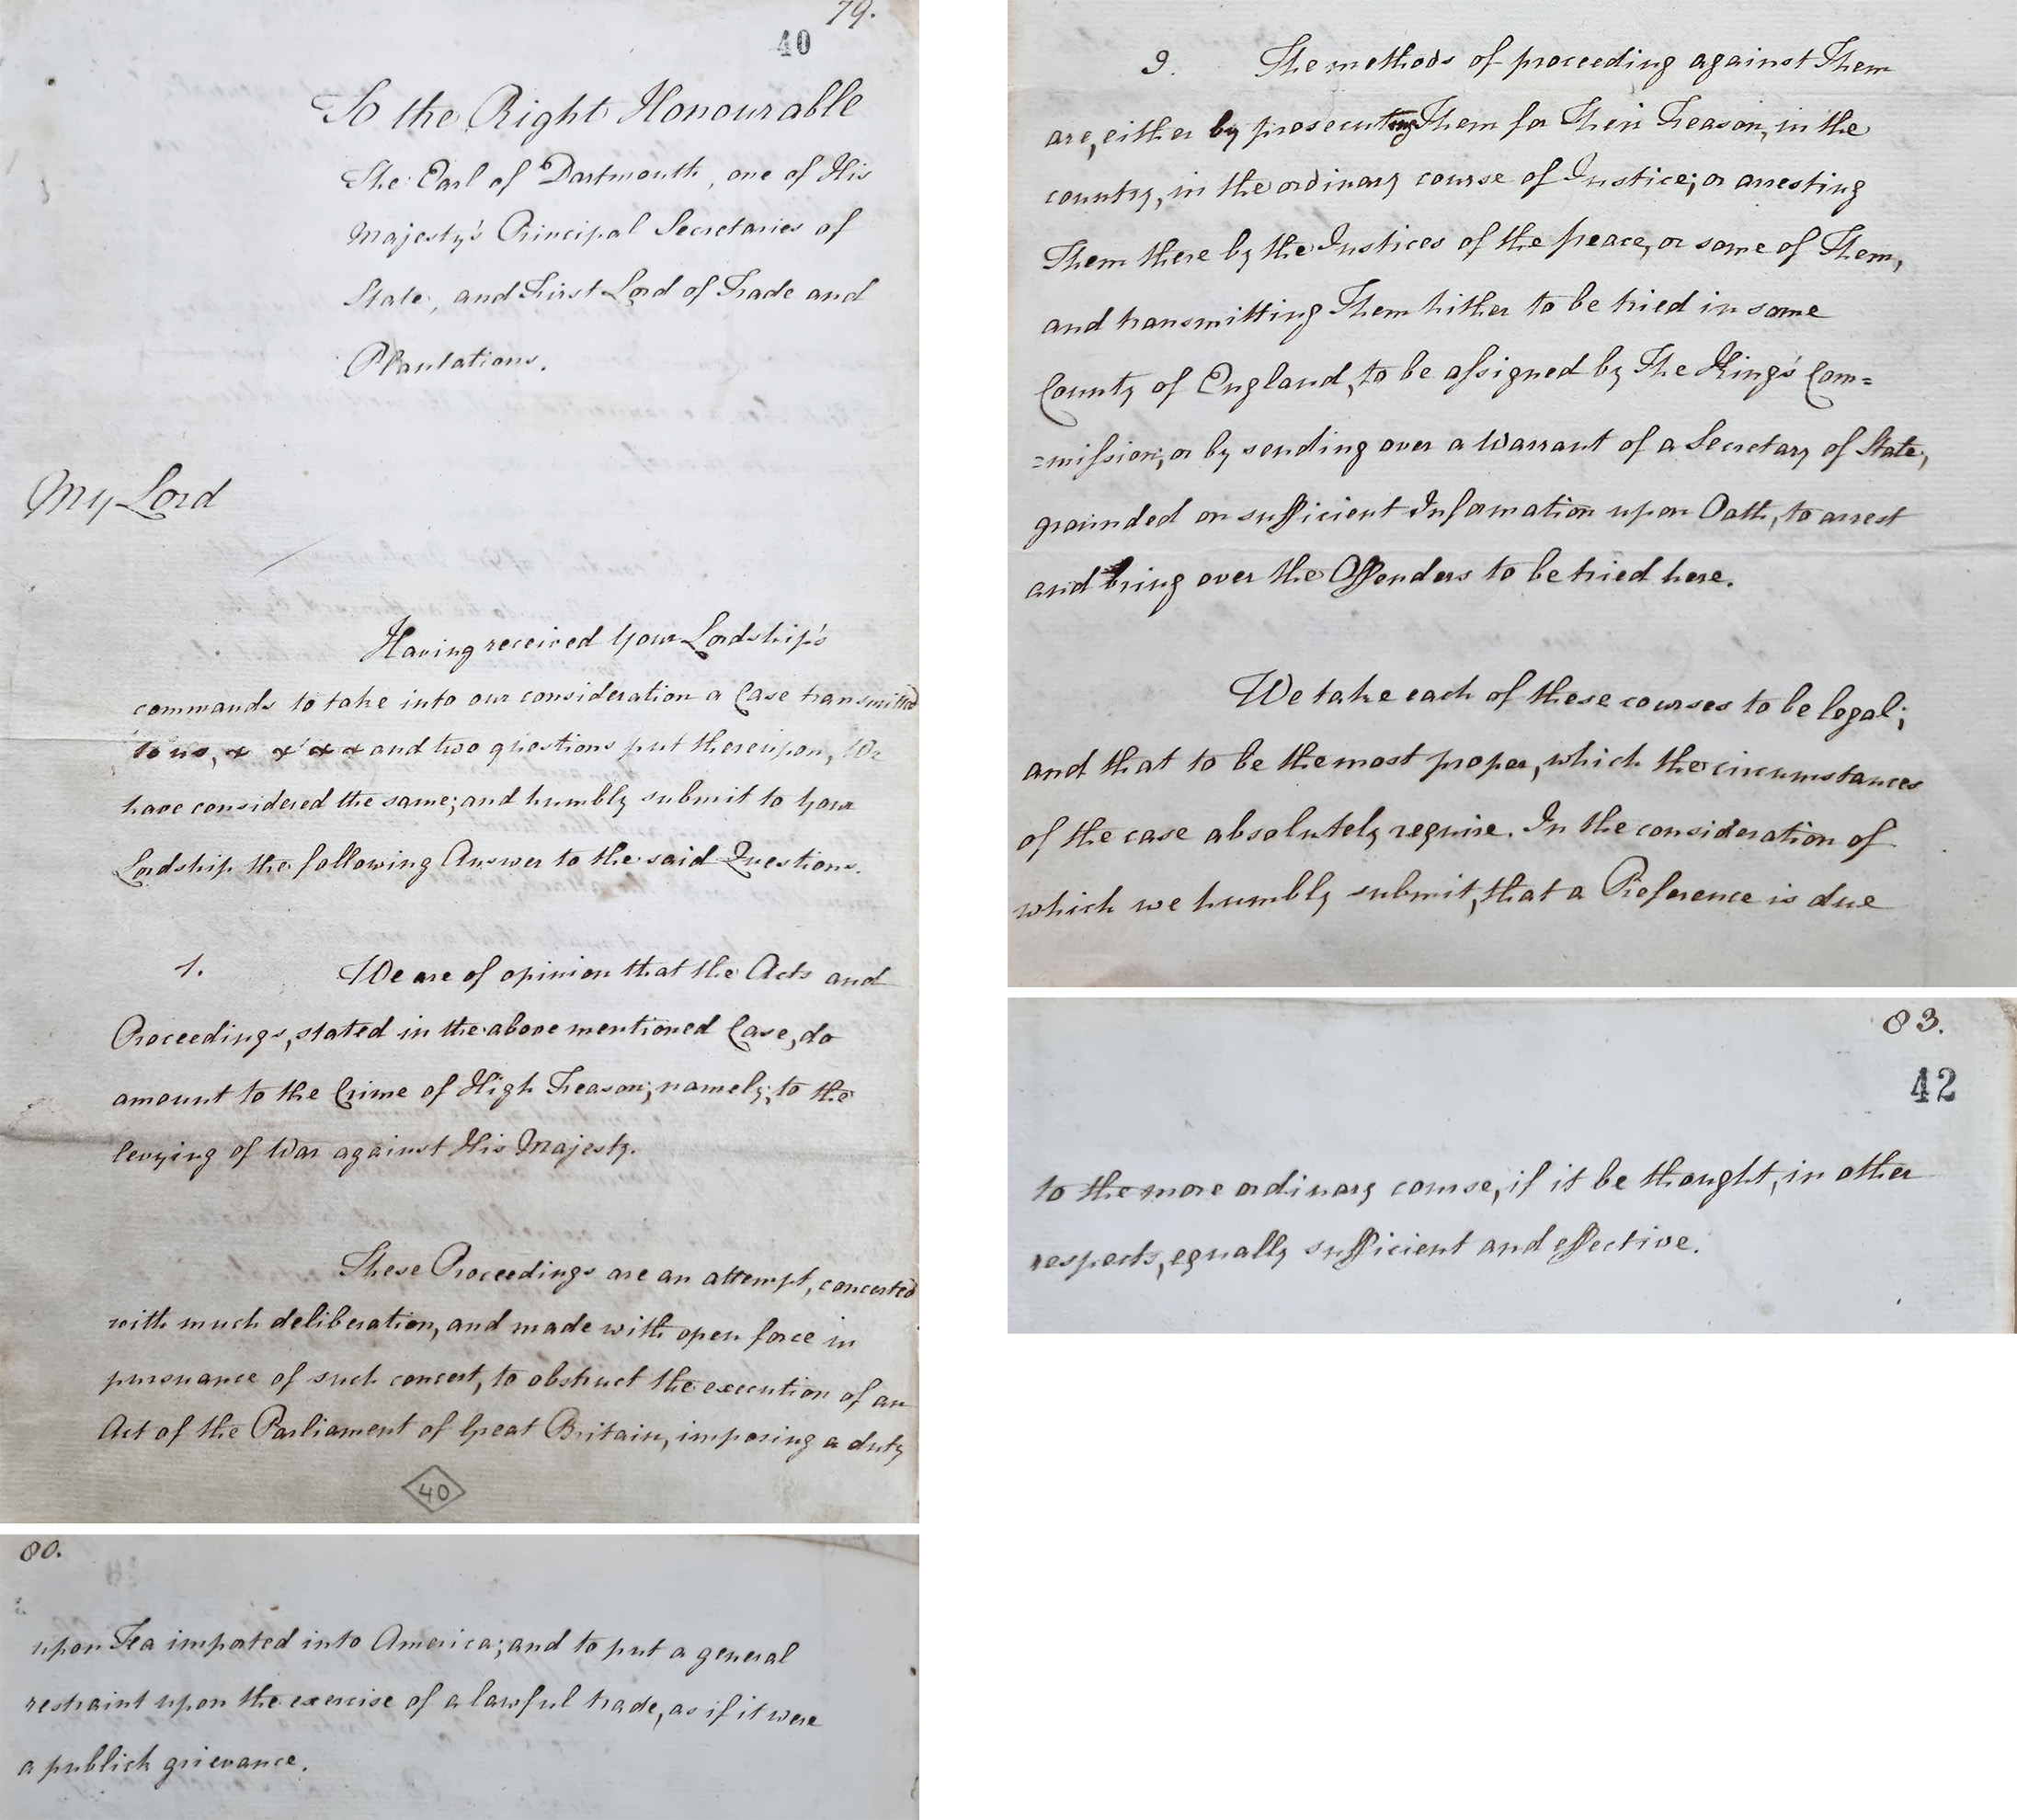 79.
40
To the Right Honourable
The Earl of Dartmouth, one of His
Majesty's Principal Secretaries of
State, and First Lord of Trade and
Plantations.
My Lord
Having received Your Lordship's
commands to take into our consideration a Case transmitted
to us, x x x x and two questions put thereupon, We
have considered the same; and humbly submit to Your
Lordship the following Answer to the said Questions.
1. We are of opinion that the Acts and
Proceedings, stated in the above mentioned Case, do
amount to the Crime of High Treason; namely; to the
levying of War against His Majesty.
These Proceedings are an attempt, concerted
with much deliberation, and made with open force in
pursuance of such concert, to obstruct the execution of an
Act of the Parliament of Great Britain, imposing a duty
40
80.
upon Tea imported into America; and to put a general
restraint upon the exercise of a lawful trade, as if it were
a publick grievance.
2. The methods of proceeding against Them
are, either by prosecuting Them for Their Treason, in the
country, in the ordinary course of Justice; or arresting
Them there by the Justices of the peace, or some of Them,
and transmitting Them hither to be tried in some
County of England, to be assigned by The King's Com=
=mission; or by sending over a Warrant of a Secretary of State,
grounded on sufficient Information upon Oath, to arrest
and bring over the Offenders to be tried here.
We take each of these courses to be legal;
and that to be the most proper, which the circumstances
of the case absolutely require. In the consideration of
which we humbly submit, that a Preference is due
83.
42
to the more ordinary course, if it be thought, in other
respects, equally sufficient and effective.